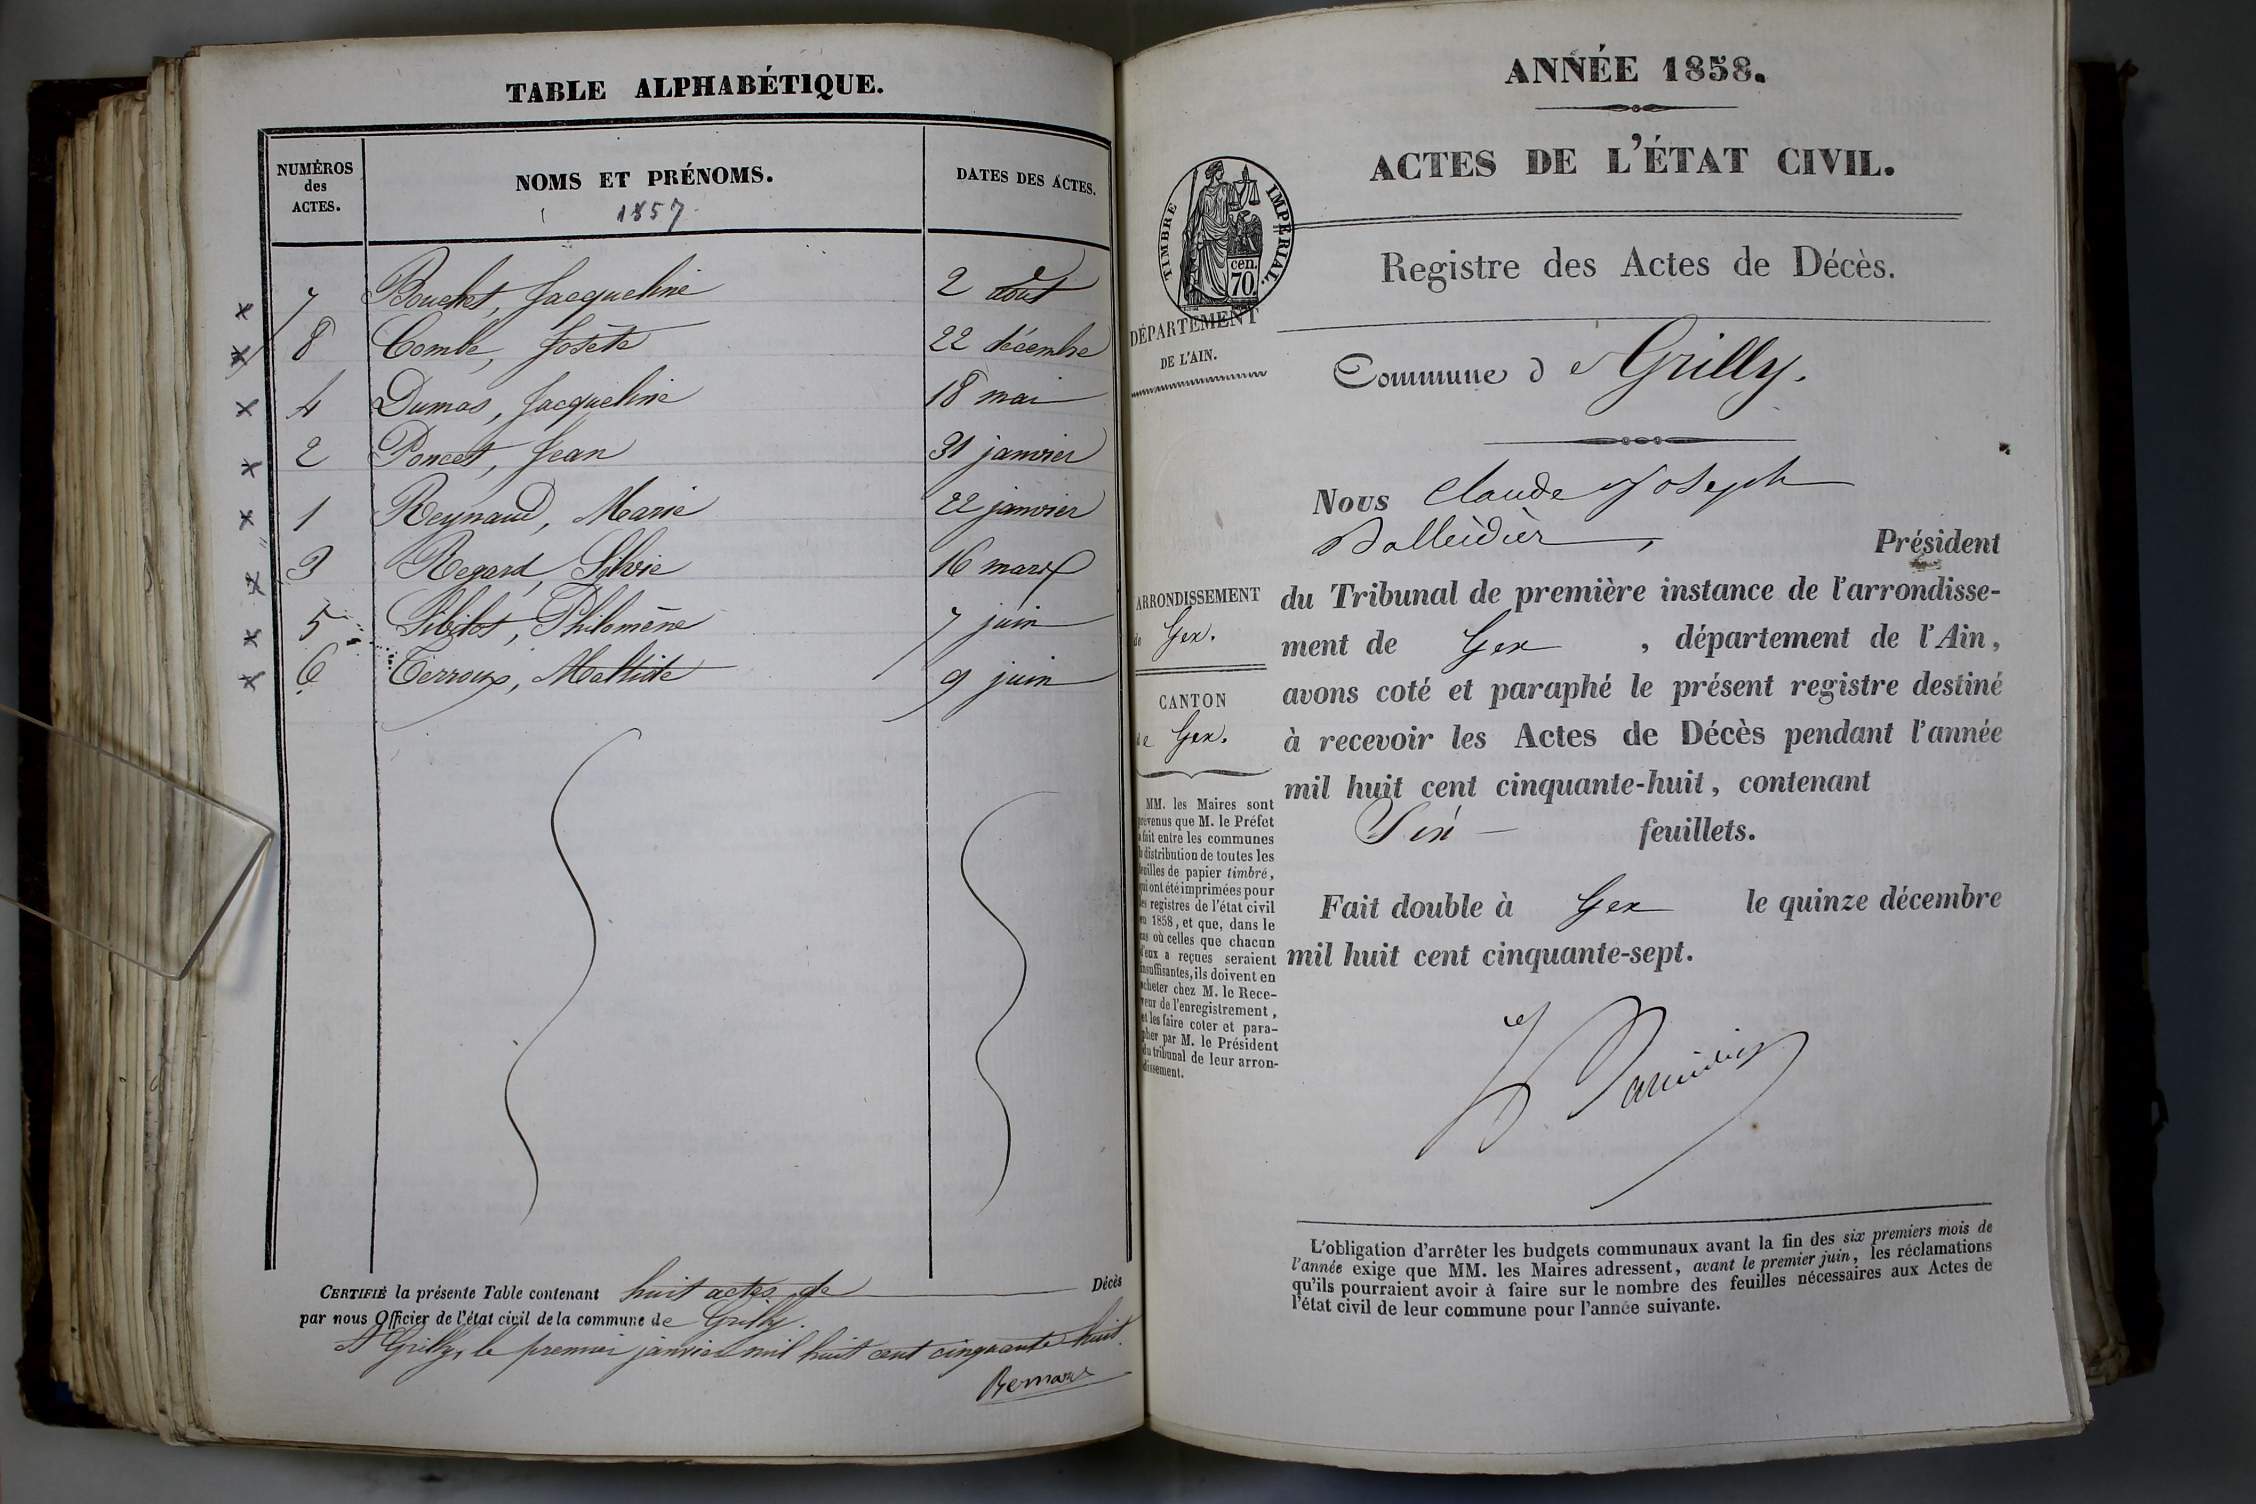 TABLE ALPHABÉTIQUE.
NUMÉROS
des
ACTES.
NOMS ET PRÉNOMS.
1857
DATES DES ACTES.
7 Bouchet, Jacqueline 2 août
8 Combe, Josète 22 décembre
4 Dumas, Jacqueline 18 mai
2 Poncet, Jean 31 janvier
1 Reynaud, Marie 22 janvier
3 Regard, Silvie 16 mars
5 Philomène 7 juin
6 Terroux, 9 juin
CERTIFIÉ la présente Table contenant huit actes de Décès
par nous Officier de l'état civil de la commune de Grilly.
A Grilly, le premier janvier mil huit cent cinquante huit.
ANNÉE 1858.
ACTES DE L'ÉTAT CIVIL.
TIMBRE IMPÉRIAL.
cen.
70.
Registre des Actes de Décès.
DÉPARTEMENT
DE L'AIN.
Commune de Grilly.
Nous Claude Joseph
Président
du Tribunal de première instance de l'arrondisse-
ment de Gex, département de l'Ain,
avons coté et paraphé le présent registre destiné
à recevoir les Actes de Décès pendant l'année
mil huit cent cinquante-huit, contenant
feuillets.
Fait double à Gex le quinze décembre
mil huit cent cinquante-sept.
ARRONDISSEMENT
de Gex.
CANTON
de Gex.
MM. les Maires sont
prévenus que M. le Préfet
a fait entre les communes
la distribution de toutes les
feuilles de papier timbré,
qui ont été imprimées pour
les registres de l'état civil
en 1858, et que, dans le
cas où celles que chacun
d'eux a reçues seraient
insuffisantes, ils doivent en
acheter chez M. le Rece-
veur de l'enregistrement,
et les faire coter et para-
pher par M. le Président
du tribunal de leur arron-
dissement.
L'obligation d'arrêter les budgets communaux avant la fin des six premiers mois de
l'année exige que MM. les Maires adressent, avant le premier juin, les réclamations
qu'ils pourraient avoir à faire sur le nombre des feuilles nécessaires aux Actes de
l'état civil de leur commune pour l'année suivante.